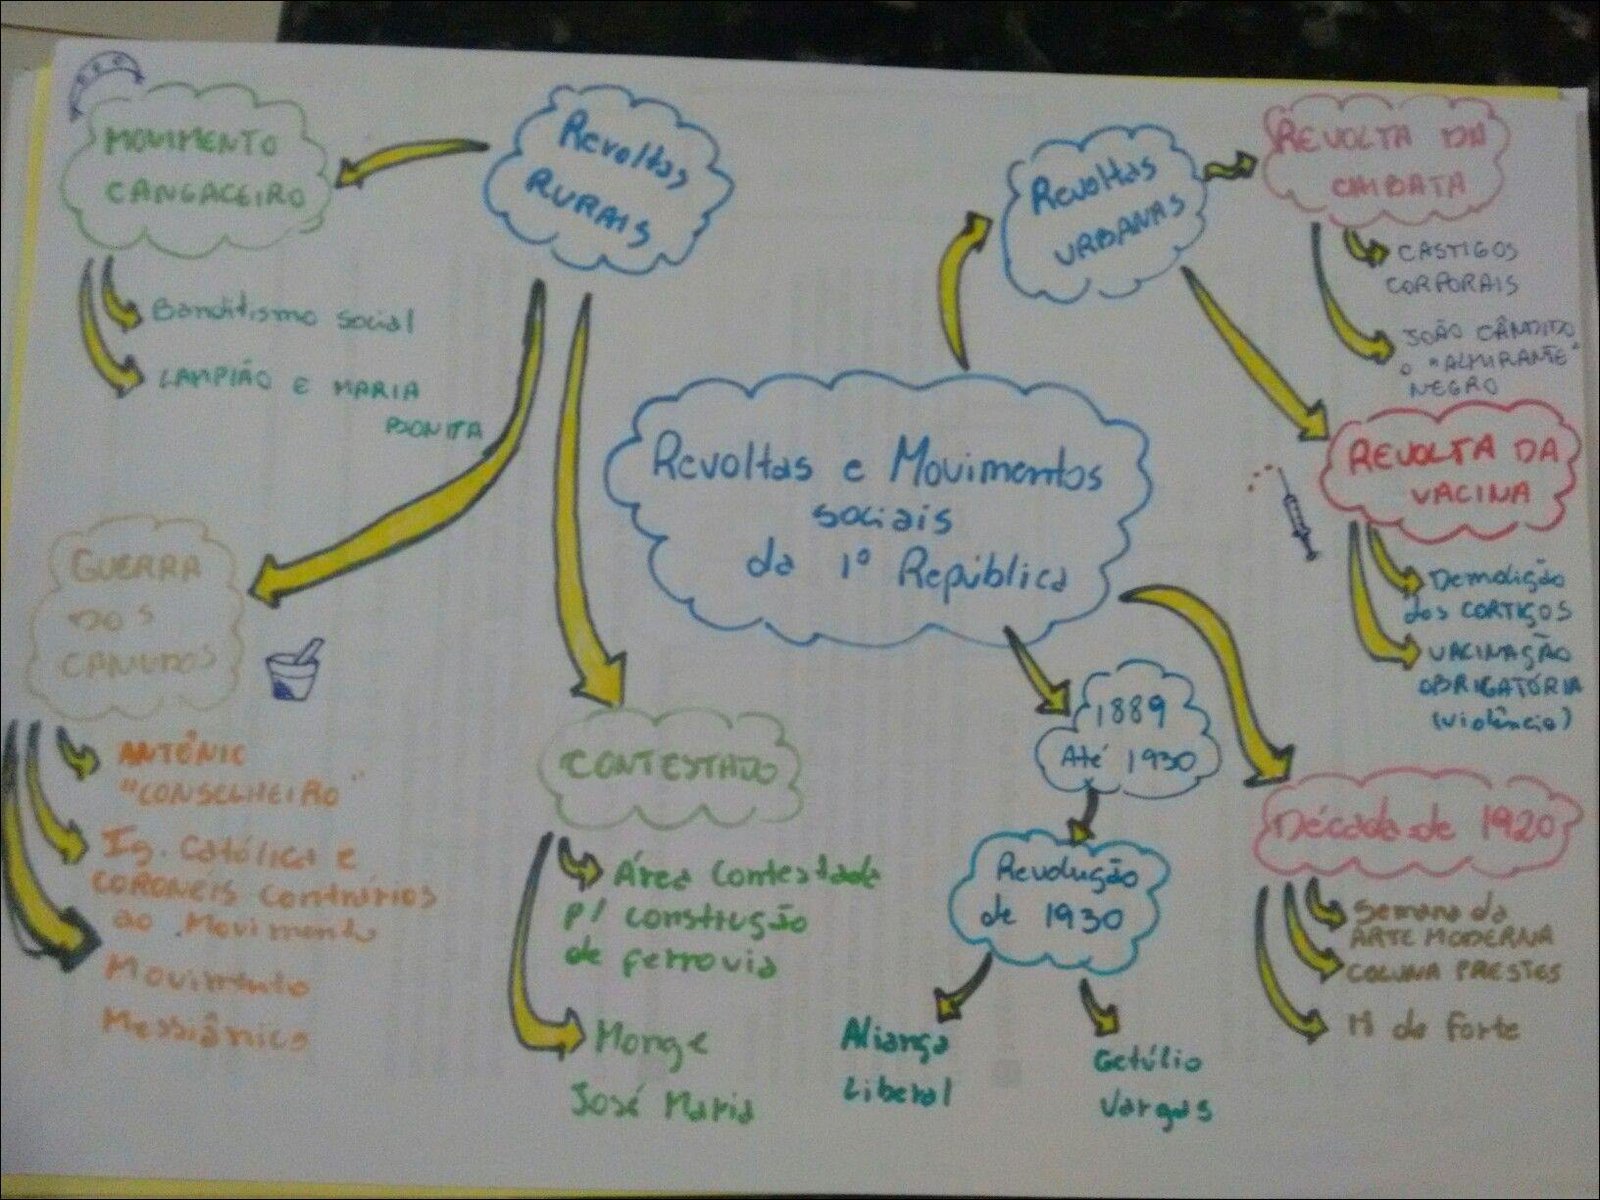 MOVIMENTO
CANGACEIRO
Banditismo social
LAMPIÃO E MARIA
BONITA
Revoltas
RURAIS
Revoltas
URBANAS
REVOLTA DA
CHIBATA
CASTIGOS
CORPORAIS
JOÃO CÂNDIDO
o "ALMIRANTE"
NEGRO
Revoltas e Movimentos
sociais
da 1º República
REVOLTA DA
VACINA
Demolição
dos CORTIÇOS
VACINAÇÃO
OBRIGATÓRIA
(violência)
GUERRA
DOS
CANUDOS
ANTÔNIO
"CONSELHEIRO"
Ig. Católica e
CORONÉIS Contrários
ao Movimento
Movimento
Messiânico
CONTESTADO
Área Contestada
p/ construção
de ferrovia
Monge
José Maria
1889
Até 1930
Revolução
de 1930
Aliança
Liberal
Getúlio
Vargas
Década de 1920
Semana da
ARTE MODERNA
COLUNA PRESTES
do Forte